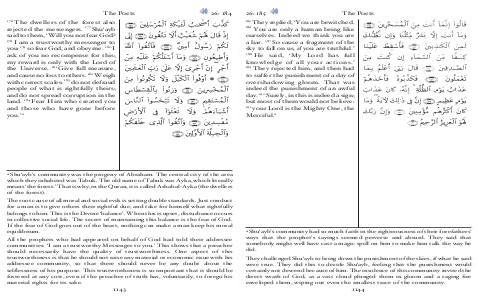 The Poets 26: 184
176 The dwellers of the forest also
rejected the messengers. 177 Shu'ayb
said to them, 'Will you not fear God?
178 I am a trustworthy messenger to
you: 179 so fear God, and obey me. 180 I
ask of you no recompense for this:
my reward is only with the Lord of
the Universe. 181 Give full measure,
and cause no loss to others. 182 Weigh
with correct scales: 183 do not defraud
people of what is rightfully theirs;
and do not spread corruption in the
land. 184 Fear Him who created you
and those who have gone before
you.'a
كَذَّبَ أَصْحَابُ لَيْكَةِ الْمُرْسَلِينَ
إِذْ قَالَ لَهُمْ شُعَيْبٌ أَلَا تَتَّقُونَ إِنِّي
لَكُمْ رَسُولٌ أَمِينٌ فَاتَّقُوا اللَّهَ
وَأَطِيعُونِ وَمَا أَسْأَلُكُمْ عَلَيْهِ مِنْ
أَجْرٍ إِنْ أَجْرِيَ إِلَّا عَلَى رَبِّ الْعَالَمِينَ
أَوْفُوا الْكَيْلَ وَلَا تَكُونُوا مِنَ
الْمُخْسِرِينَ وَزِنُوا بِالْقِسْطَاسِ
الْمُسْتَقِيمِ وَلَا تَبْخَسُوا النَّاسَ
أَشْيَاءَهُمْ وَلَا تَعْثَوْا فِي الْأَرْضِ
مُفْسِدِينَ وَاتَّقُوا الَّذِي خَلَقَكُمْ
وَالْجِبِلَّةَ الْأَوَّلِينَ
a Shu'ayb's community was the progeny of Abraham. The central city of the area
which they inhabited was Tabuk. The old name of Tabuk was Ayka, which literally
means 'the forest.' That is why, in the Quran, it is called Ashabal-Ayka (the dwellers
of the forest).
The root cause of all moral and social evils is transgressing standards. Just conduct
for a man is to give others their rightful due, and take for himself what rightfully
belongs to him. This is the Divine 'balance'. When this is upset, disturbance occurs
in collective social life. The secret of maintaining this balance is the fear of God.
If the fear of God goes out of the heart, nothing can make a man keep his moral
equilibrium.
All the prophets who had appeared on behalf of God had told their addressee
communities: 'I am a trustworthy Messenger to you.' This shows that a preacher
must necessarily have the quality of trustworthiness. One aspect of this
trustworthiness is that he should not raise any material or economic issue with his
addressee community, so that there should never be any doubt about the
selflessness of his purpose. This trustworthiness is so important that it should be
fostered at any cost, even if the preacher of truth has, voluntarily, to forego his
material rights for its sake.
1143
26: 185 The Poets
185 They replied, 'You are bewitched.
186 You are only a human being like
ourselves. Indeed we think you are
a liar. 187 So cause a fragment of the
sky to fall on us, if you are truthful.'
188 He said, 'My Lord has full
knowledge of all your actions.'
189 They rejected him, and then had
to suffer the punishment of a day of
overshadowing gloom. That was
indeed the punishment of an awful
day. 190 Surely, in this is indeed a sign;
but most of them would not believe:
191 your Lord is the Mighty One, the
Merciful.a
قَالُوا إِنَّمَا أَنْتَ مِنَ الْمُسَحَّرِينَ
وَمَا أَنْتَ إِلَّا بَشَرٌ مِثْلُنَا وَإِنْ نَظُنُّكَ
لَمِنَ الْكَاذِبِينَ فَأَسْقِطْ عَلَيْنَا
كِسَفًا مِنَ السَّمَاءِ إِنْ كُنْتَ مِنَ
الصَّادِقِينَ قَالَ رَبِّي أَعْلَمُ بِمَا
تَعْمَلُونَ فَكَذَّبُوهُ فَأَخَذَهُمْ
عَذَابُ يَوْمِ الظُّلَّةِ إِنَّهُ كَانَ عَذَابَ
يَوْمٍ عَظِيمٍ إِنَّ فِي ذَلِكَ لَآيَةً وَمَا
كَانَ أَكْثَرُهُمْ مُؤْمِنِينَ وَإِنَّ رَبَّكَ
لَهُوَ الْعَزِيزُ الرَّحِيمُ
a Shu'ayb's community had so much faith in the righteousness of their forefathers'
ways that the prophet's sayings seemed perverse and absurd. They said that
somebody might well have cast a magic spell on him to make him talk the way he
did.
They challenged Shu'ayb to bring down the punishment of the skies, if what he said
were true. They did this to deride Shu'ayb, feeling that the punishment would
certainly not descend because of him. The insolence of this community invited the
direct wrath of God, as a vast cloud plunged them in gloom and a raging fire
enveloped them, wiping out even the smallest trace of the community.
1144